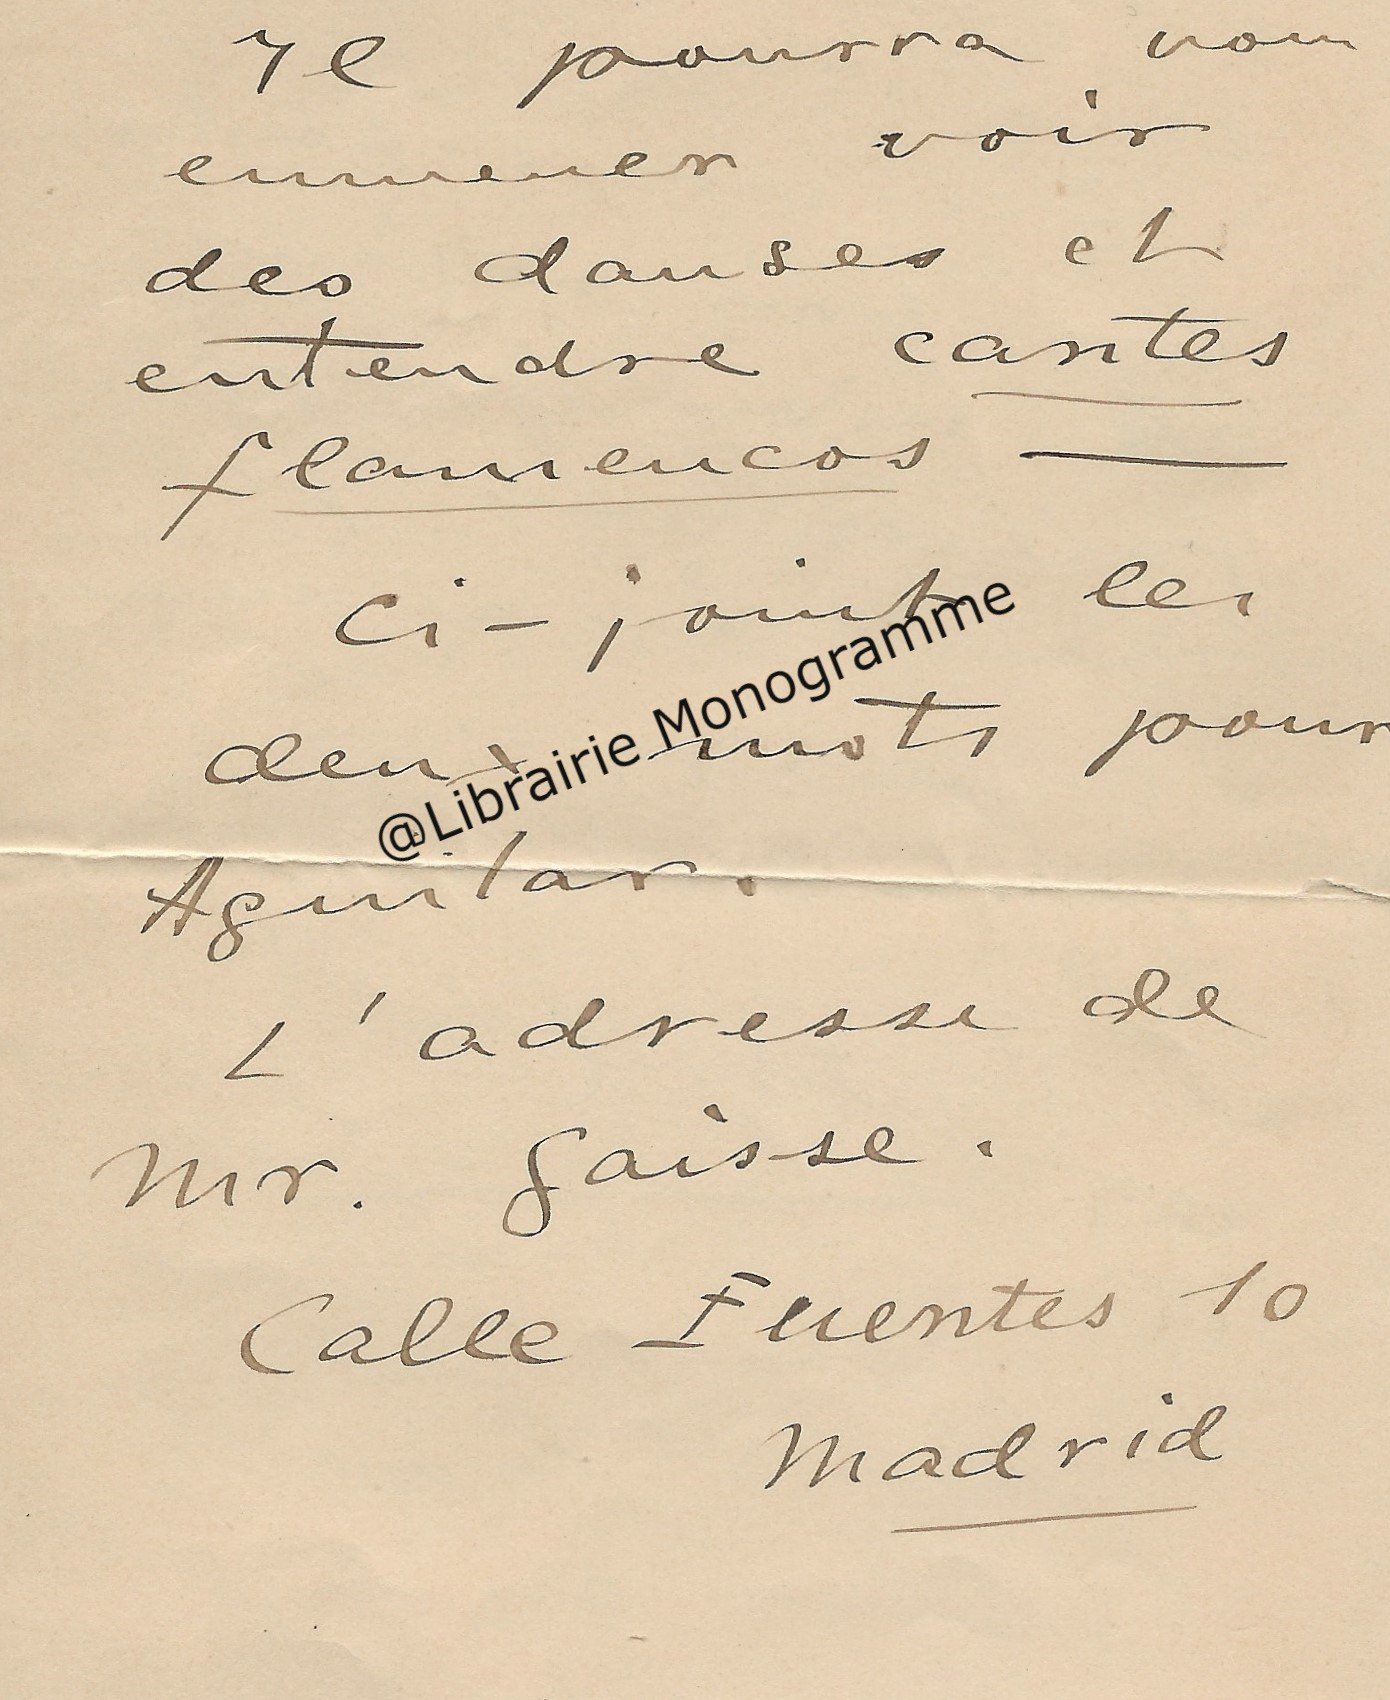 Il pourra vous
emmener voir
des danses et
entendre cantes
flamencos —
Ci-joint les
deux mots pour
Aguilar.
@Librairie Monogramme
L'adresse de
Mr. Gaisse.
Calle Fuentes 10
Madrid